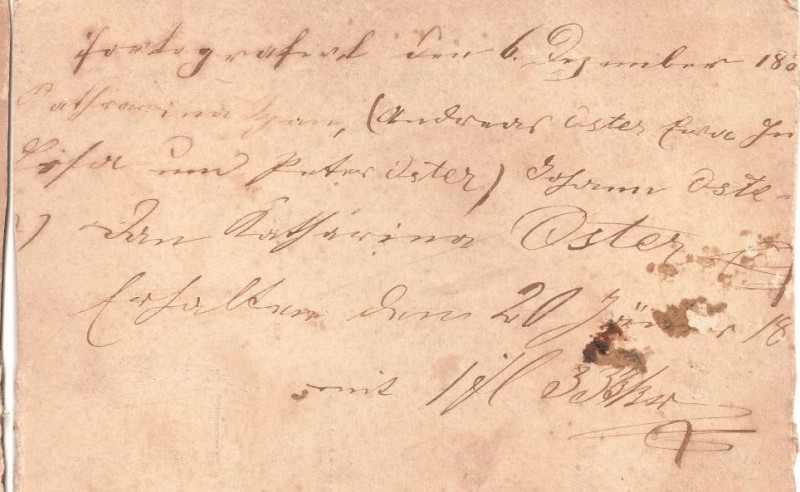 fortografirt den 6. Dezember 18
Katharina, (Andreas Oster Eva
und Peter Oster) Johann Oste-
r) dan Katharina Oster
Erhalten dem 20 Jäner 18
mit 1 fl 33 kr